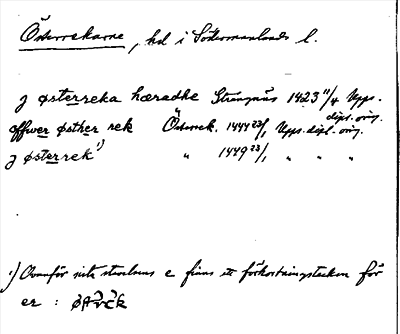 Österrekarne, hd i Södermanlands l.
j østerreka hæradhe Strängnäs 1423 11/4 Upps. dipl. orig.
offwer østher rek Österrek. 1444 23/1 Upps. dipl. orig.
j østerrek 1) " 1449 23/1 " " "
1) Ovanför sista stavelsens e finns ett förkortningstecken för
er : øst rek